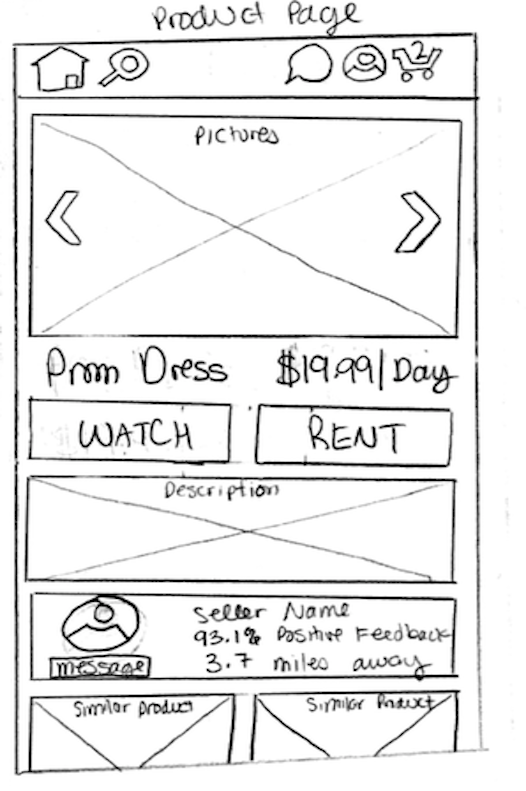 Product Page
2
Pictures
Prom Dress $19.99/Day
WATCH RENT
Description
Seller Name
93.1% Positive Feedback
message 3.7 miles away
Similar product Similar Product